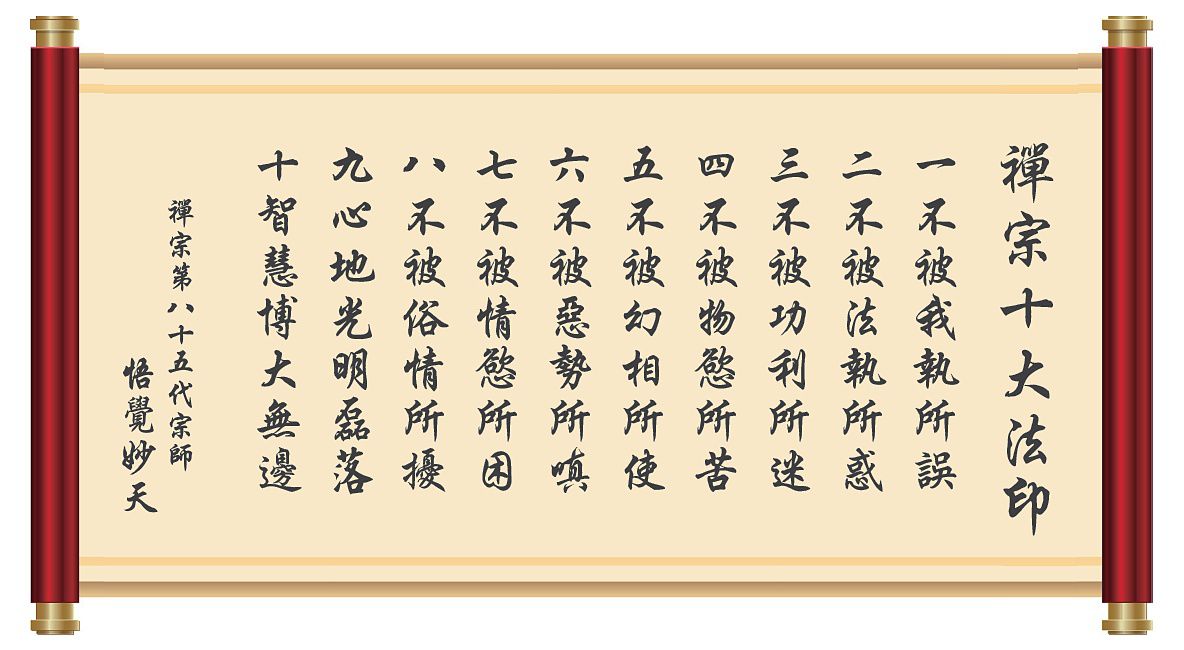 禪宗十大法印
一不被我執所誤
二不被法執所惑
三不被功利所迷
四不被物慾所苦
五不被幻相所使
六不被惡勢所嗔
七不被情慾所困
八不被俗情所擾
九心地光明磊落
十智慧博大無邊
禪宗第八十五代宗師
悟覺妙天